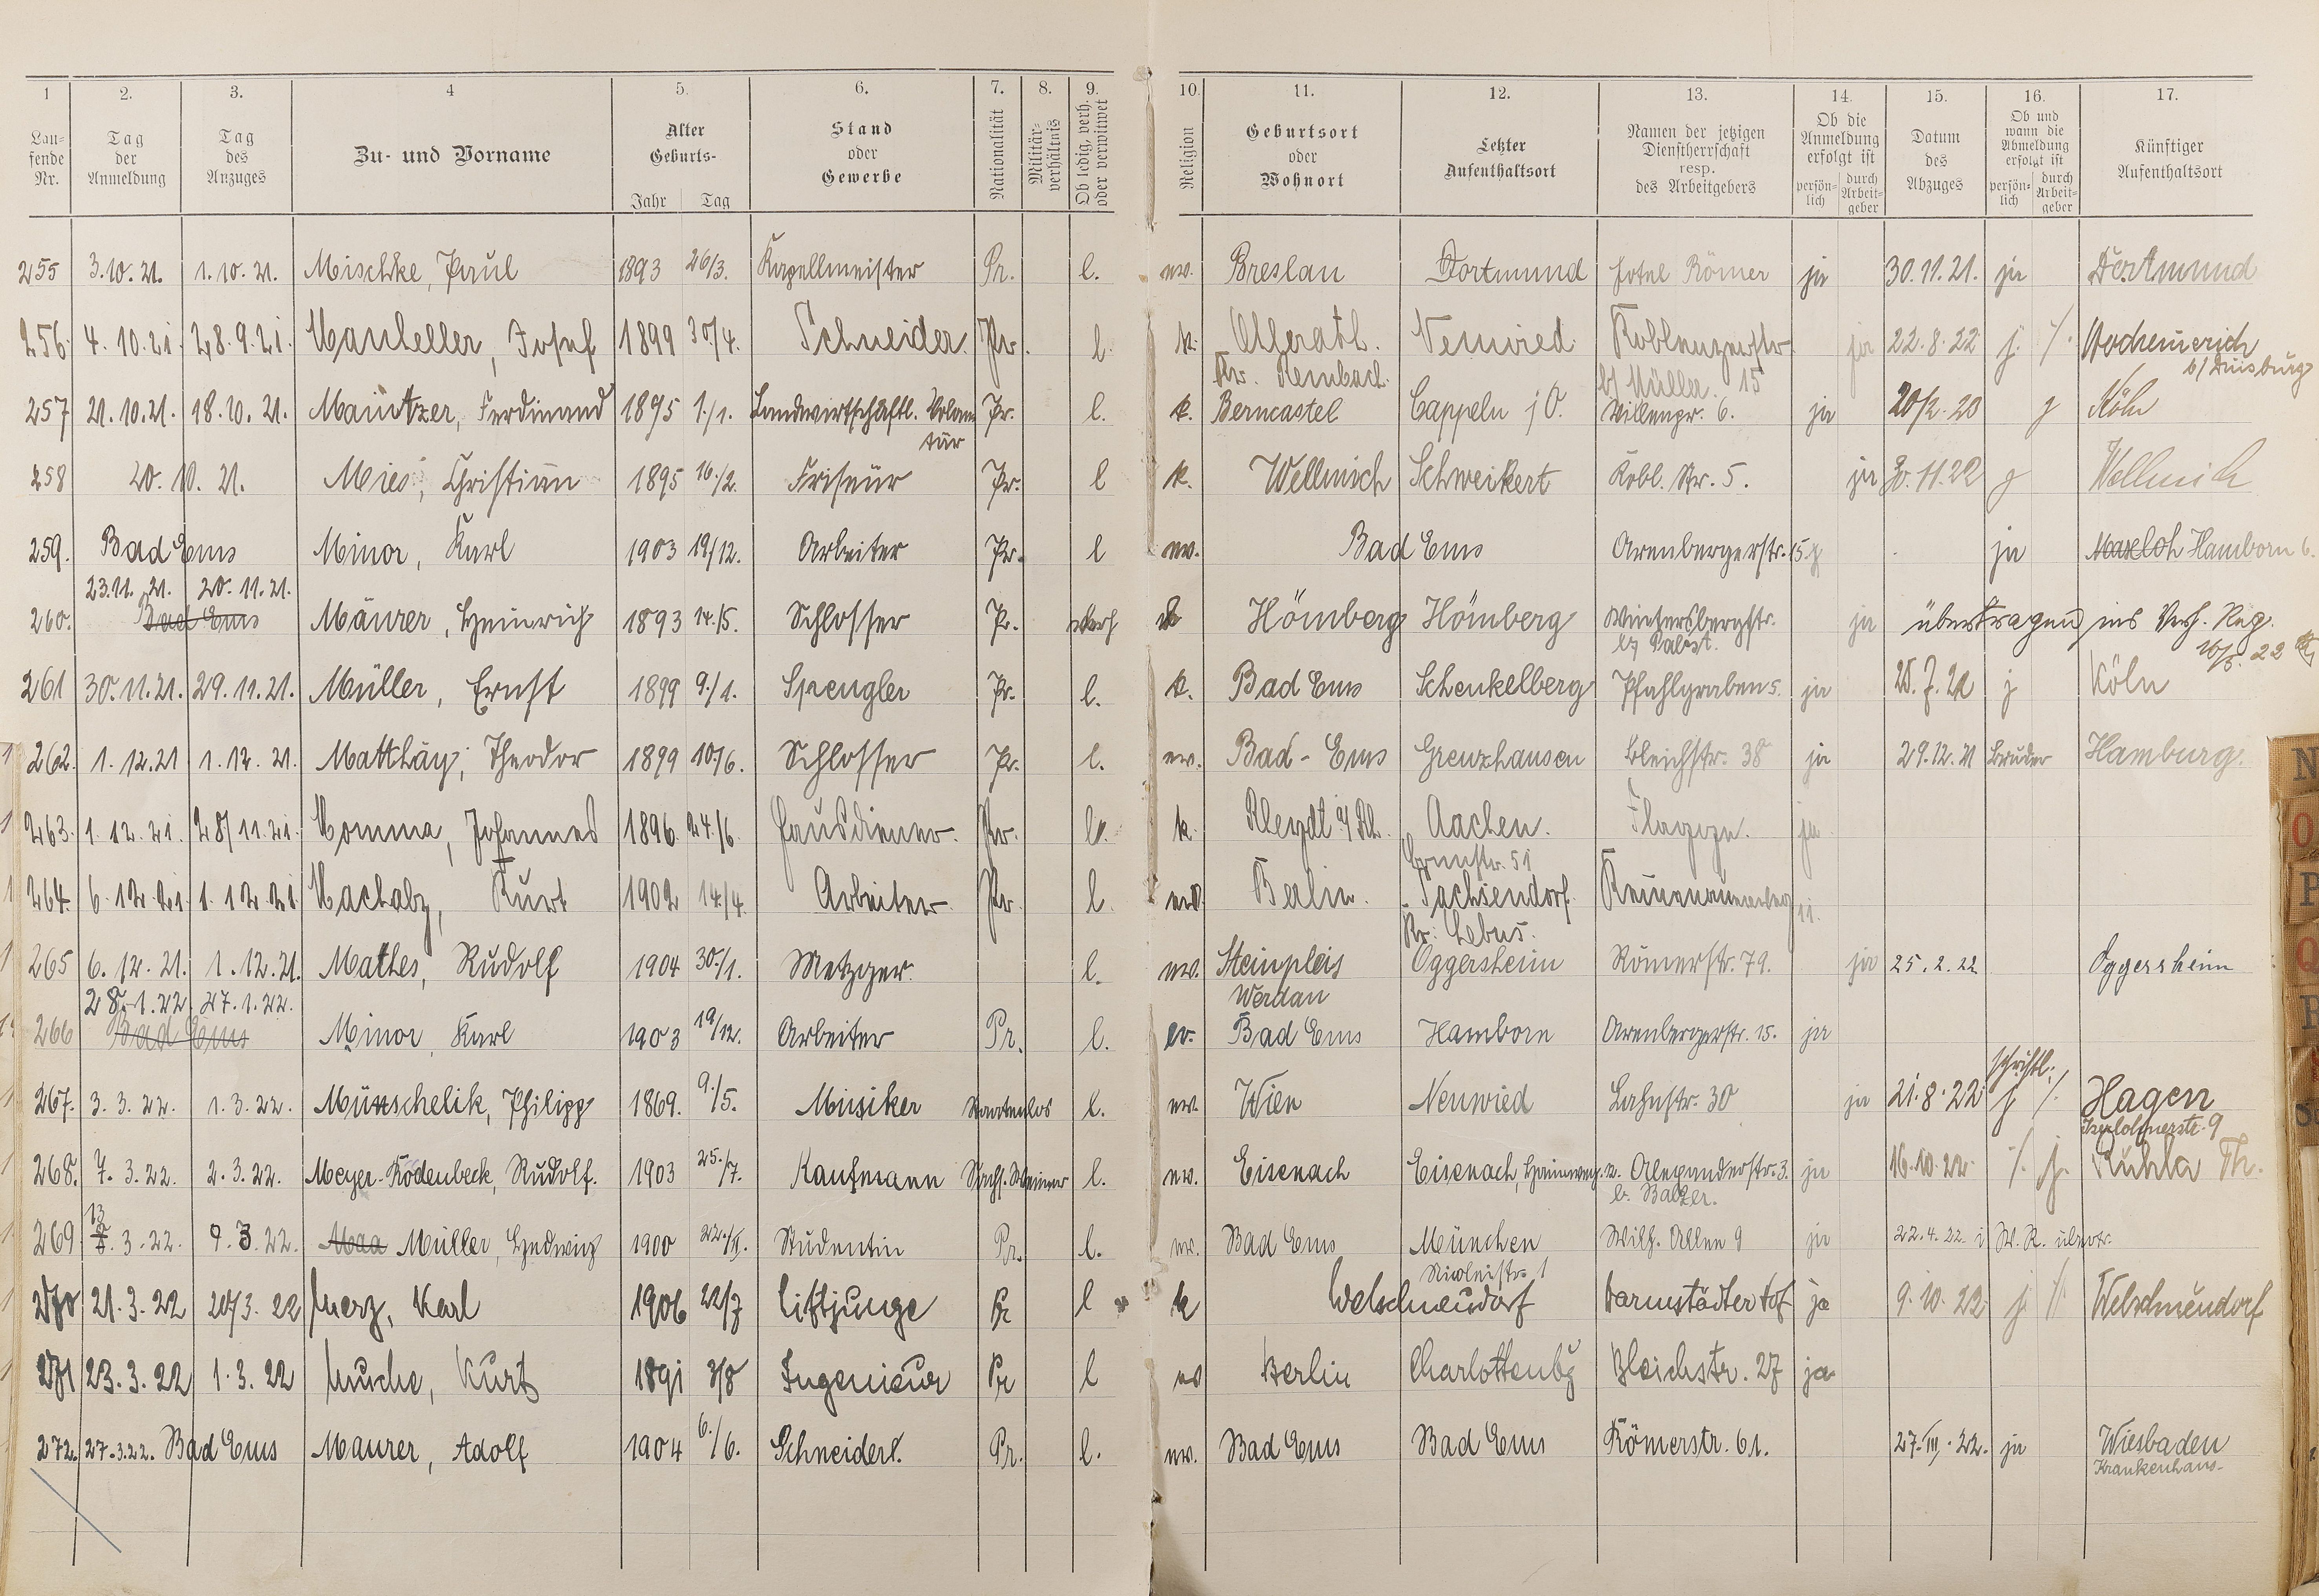 1 2. 3. 4 5. 6. 7. 8. 9. 10. 11. 12. 13. 14. 15. 16. 17.
Lau=fende Nr. Tag der Anmeldung Tag des Anzuges Zu- und Vorname Alter Geburts- Jahr Tag Stand oder Gewerbe Nationalität Militär-verhältnis Ob ledig, verh. oder verwitwet Religion Geburtsort oder Wohnort Letzter Aufenthaltsort Namen der jetzigen Dienstherrschaft resp. des Arbeitgebers Ob die Anmeldung erfolgt ist persön-lich durch Arbeit-geber Datum des Abzuges Ob und wann die Abmeldung erfolgt ist persön-lich durch Arbeit-geber Künftiger Aufenthaltsort
255 3.10.21. 1.10.21. Mischke, Paul 1893 26/3. Kapellmeister Pr. l. ev. Breslau Dortmund Hotel Römer ja 30.11.21. ja Dortmund
256. 4.10.21. 28.9.21. Josef 1899 30/4. Schneider. Pr. l. k. Neuwied Koblenzerstr. ja 22.8.22 j. /.
Kr. Reinbach. b/ Müller. 15 b/ Duisburg
257 21.10.21. 18.10.21. Maintzer, Ferdinand 1895 1./1. Landwirtschaftl. Volon Pr. l. k. Berncastel Cappeln i O. Villenpr. 6. ja Köln
tär
258 20. 10. 21. Mies, Christian 1895 16./2. Friseur Pr. l k. Wellmich Schweikert Kobl. Str. 5. ja 30.11.22 j Wellmich
259. Bad Ems Minor, Karl 1903 19/12. Arbeiter Pr. l ev. Bad Ems Arenbergerstr. 15 ja Maxeloh Hamborn 6.
23.11.21. 20.11.21.
260. Bad Ems Mäurer, Heinrich 1893 14./5. Schlosser Pr. verh Hömberg Hömberg Wintersbergstr. ja übertragen ins Verh. Reg.
b/ Pabst. 16/5. 22
261 30.11.21. 29.11.21. Müller, Ernst 1899 9./1. Spengler Pr. l. k. Bad Ems Schenkelberg Pfahlgraben 5. ja 25.7.22 j Köln
262. 1.12.21 1.12.21. Matthäy, Theodor 1899 10./6. Schlosser Pr. l. ev. Bad-Ems Grenzhausen Bleichstr. 38 ja 29.12.21 Bruder Hamburg.
263. 1.12.21. 28/11.21. Momma, Johannes 1896. 24./6. Hausdiener. Pr. l. k. Rheydt Aachen. ja
51
264. 6.12.21. 1.12.21 Kurt 1902 14./4. Arbeiter Pr. l. ev. Berlin. Sachsendorf.
Kr. Lebus.
265 6.12.21. 1.12.21. Mathes, Rudolf 1904 30./1. Metzger. l. ev. Steinpleis Oggersheim Römerstr. 79. ja 25.2.22 Oggersheim
28.1.22. 27.1.22. Werdau
266 Bad Ems Minor, Karl 1903 19/12. Arbeiter Pr. l. ev. Bad Ems Hamborn Arenbergerstr. 15. ja
schriftl.
267. 3.3.22. 1.3.22. Philipp 1869. 9./5. Musiker Staatenlos l. ev. Wien Neuwied Lahnstr. 30 ja 21.8.22 j /. Hagen
Iserlohnerstr. 9
268. 7.3.22. 2.3.22. Meyer-Rodenbeck, Rudolf. 1903 25./7. Kaufmann Sachs. Weimar l. ev. Eisenach Eisenach, Hainweg. 2. Alexanderstr. 3. ja 16.10.22 /. j. Ruhla Th.
b. Balzer.
13
269 8.3.22. 9.3.22. Maa Müller, Hedwig 1900 Studentin Pr. l. ev. Bad Ems München Wilh. Allee 9 ja 22.4.22 i W. R. übertr.
Nicoleistr. 1
270 21.3.22 20/3.22 Merz, Karl 1906 22/7 Liftjunge Pr l k Welschneudorf Darmstädter Hof ja 9.10.22 j // Welschneudorf
271 23.3.22 1.3.22 Muche, Kurt 1891 3/8 Ingenieur Pr l ev Berlin Charlottenbg Bleichstr. 27 ja
272. 27.3.22. Bad Ems Maurer, Adolf 1904 6./6. Schneiderl. Pr. l. ev. Bad Ems Bad Ems Römerstr. 61. 27.III.22. ja Wiesbaden
Krankenhaus